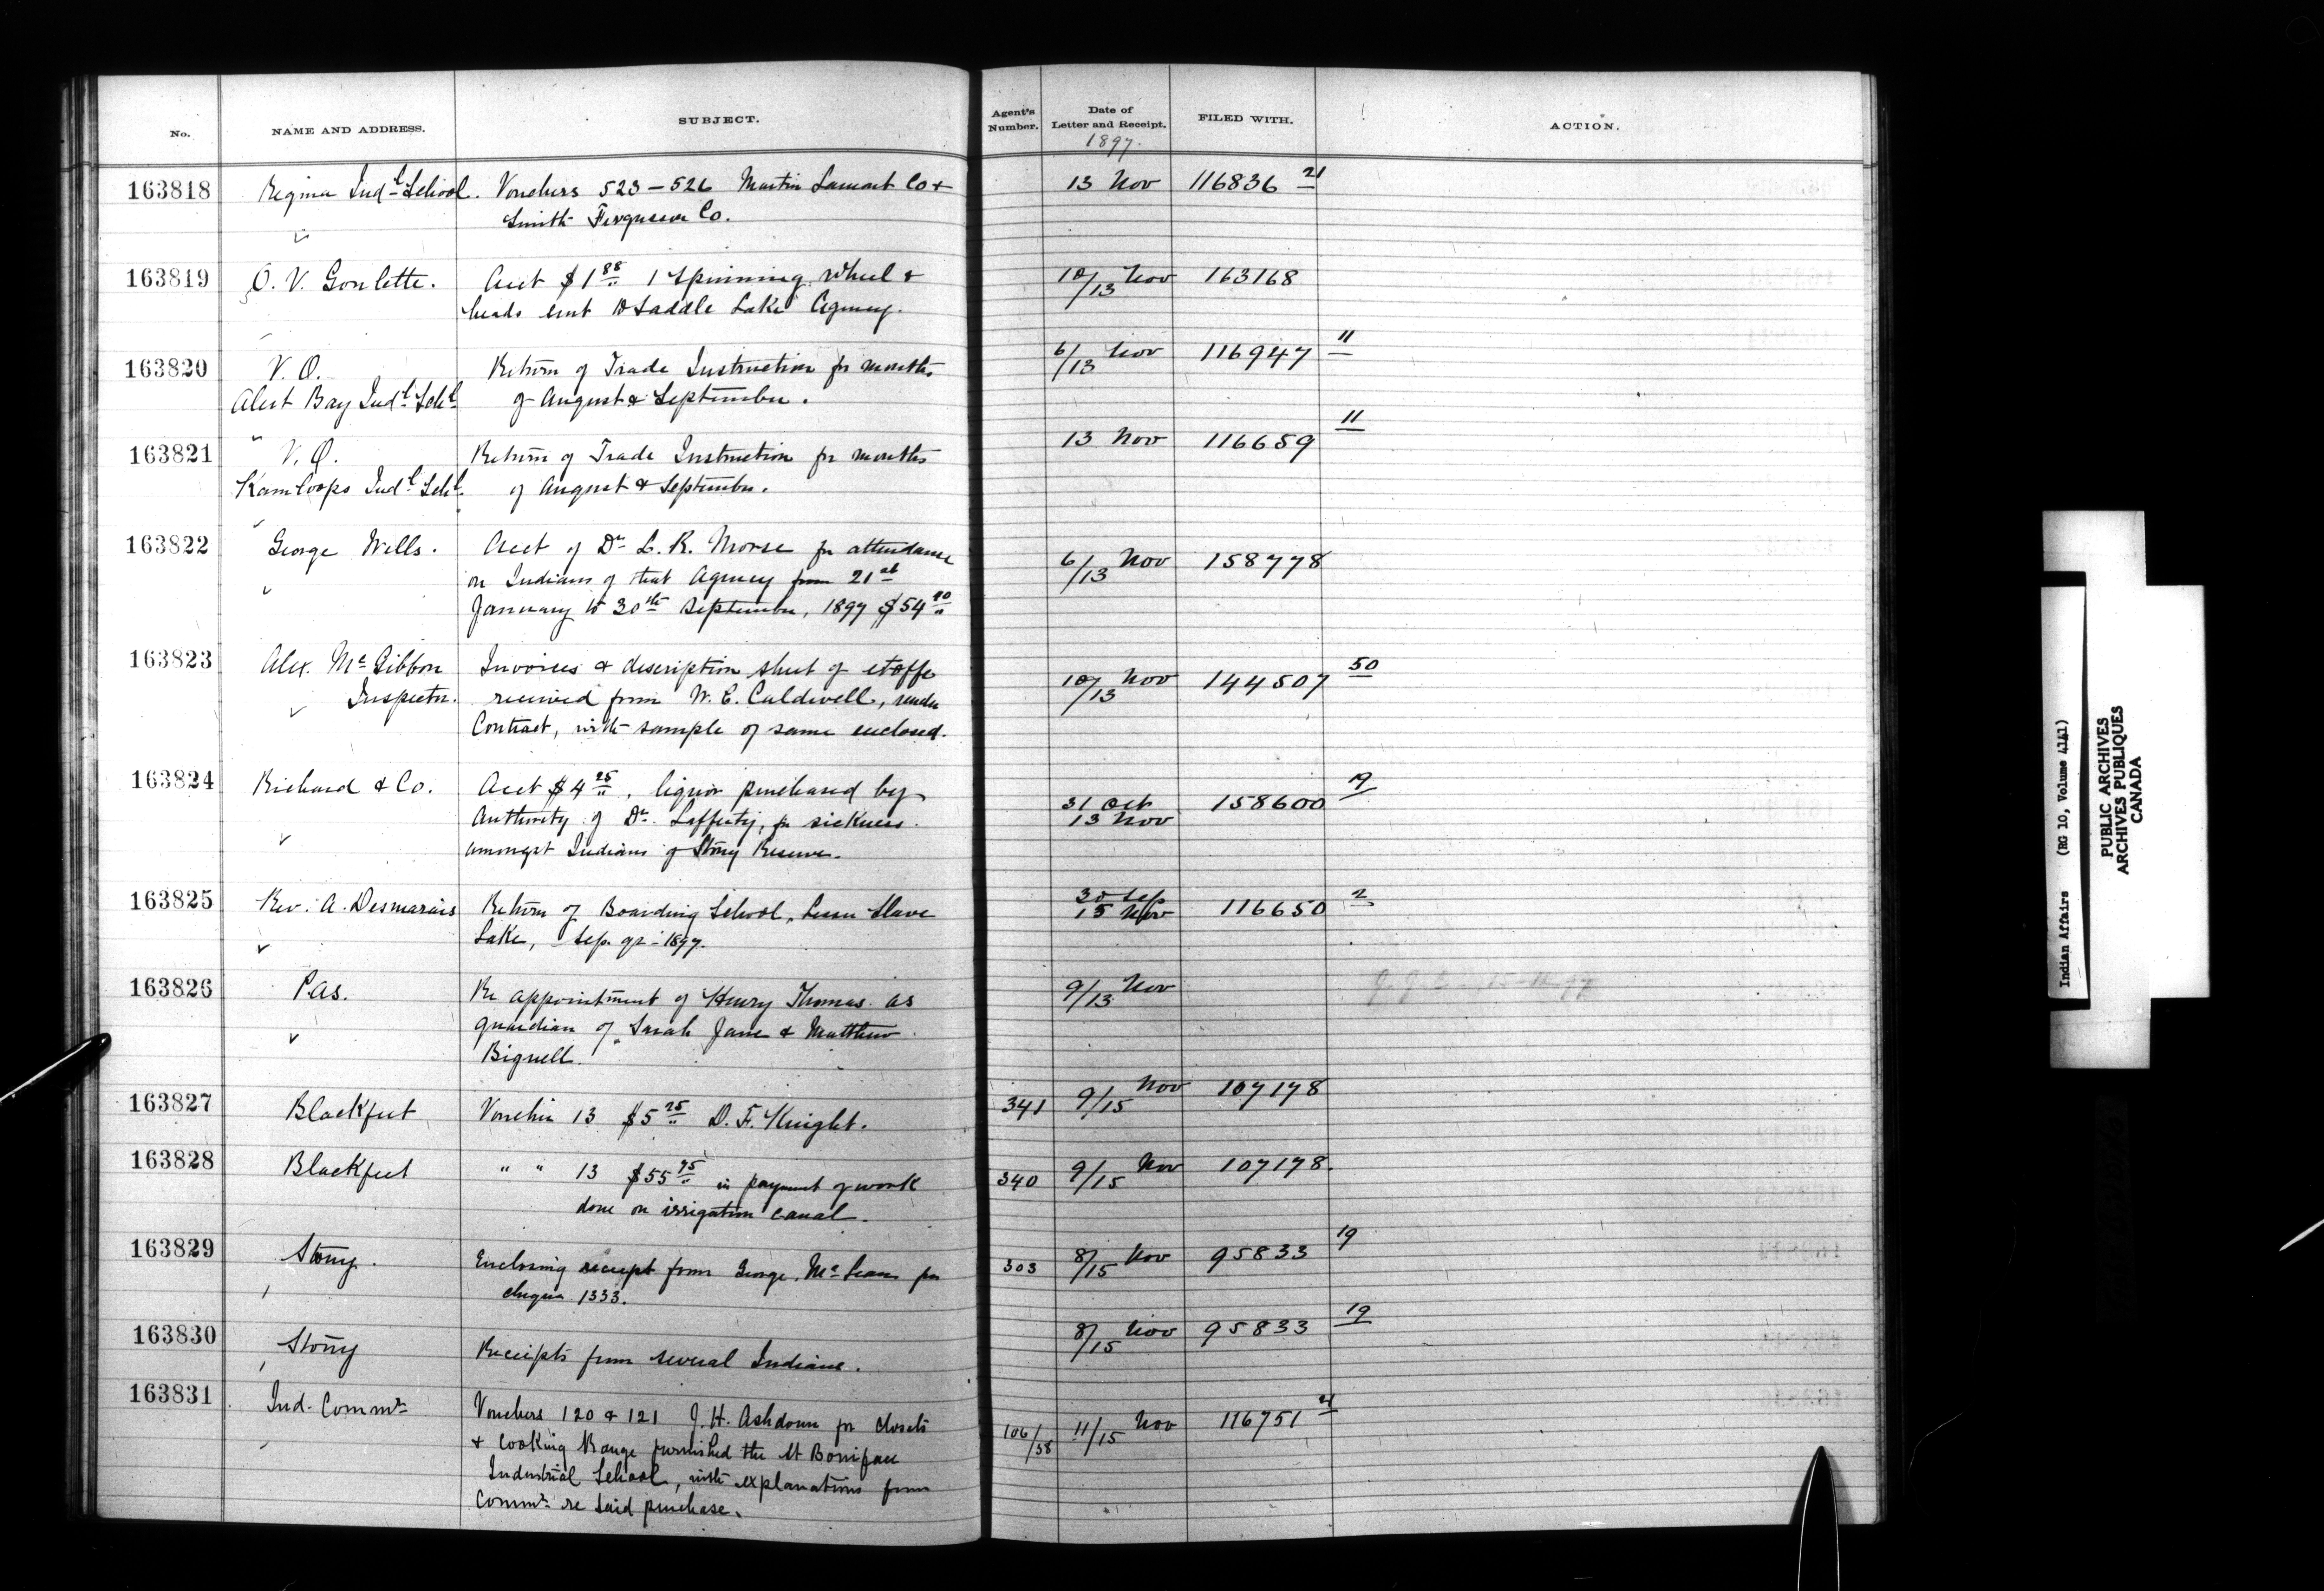 No. NAME AND ADDRESS. SUBJECT. Agent's Number. Date of Letter and Receipt. FILED WITH. ACTION.
1897.
163818 Regina Indl School. Vouchers 523-526 Martin Lamont Co & 13 Nov 116836 21
Smith Fergusson Co.
163819 O. V. Goulette. Acct $1 88 1 Spinning Wheel & 10/13 Nov 163168
heads sent to Saddle Lake Agency.
163820 V. O. Return of Trade Instruction for months 6/13 Nov 116947 11
Alert Bay Indl Schl of August & September.
163821 V. O. Return of Trade Instruction for months 13 Nov 116659 11
Kamloops Indl Schl of August & September.
163822 George Wells. Acct of Dr L. R. Morse for attendance 6/13 Nov 158778
on Indians of that Agency from 21st
January to 30th September, 1897 $54
163823 Alex. Mc Gibbon Invoices & description sheet of etoffe 10/13 Nov 144507 50
Inspector. received from W. E. Caldwell, under
Contract, with sample of same enclosed.
163824 Richard & Co. Acct $4 25, liquor purchased by 31 Oct 158600 19
Authority of Dr. Lafferty, for sickness 13 Nov
amongst Indians of Stony Reserve.
163825 Rev. A. Desmarais Return of Boarding School, Lesser Slave 30 Sep 116650 2
Lake, Sep. qr - 1897. 15 Nov
163826 Pas. Re appointment of Henry Thomas as 9/13 Nov
guardian of Sarah Jane & Matthew
Bignell.
163827 Blackfeet Voucher 13 $5 25 D. F. Knight. 341 9/15 Nov 107178
163828 Blackfeet " " 13 $55 75 in payment of work 340 9/15 Nov 107178.
done on irrigation canal.
163829 Stony. Enclosing receipt from George Mc Lean for 303 8/15 Nov 95833 19
cheque 1333.
163830 Stony Receipts from several Indians. 8/15 Nov 95833 19
163831 Ind. Commr Vouchers 120 & 121 J. H. Ashdown for closets 106/38 11/15 Nov 116751 21
& cooking Range furnished the St Boniface
Industrial School, with explanations from
Commr re said purchase.
Indian Affairs (RG 10, Volume 4141)
PUBLIC ARCHIVES
ARCHIVES PUBLIQUES
CANADA